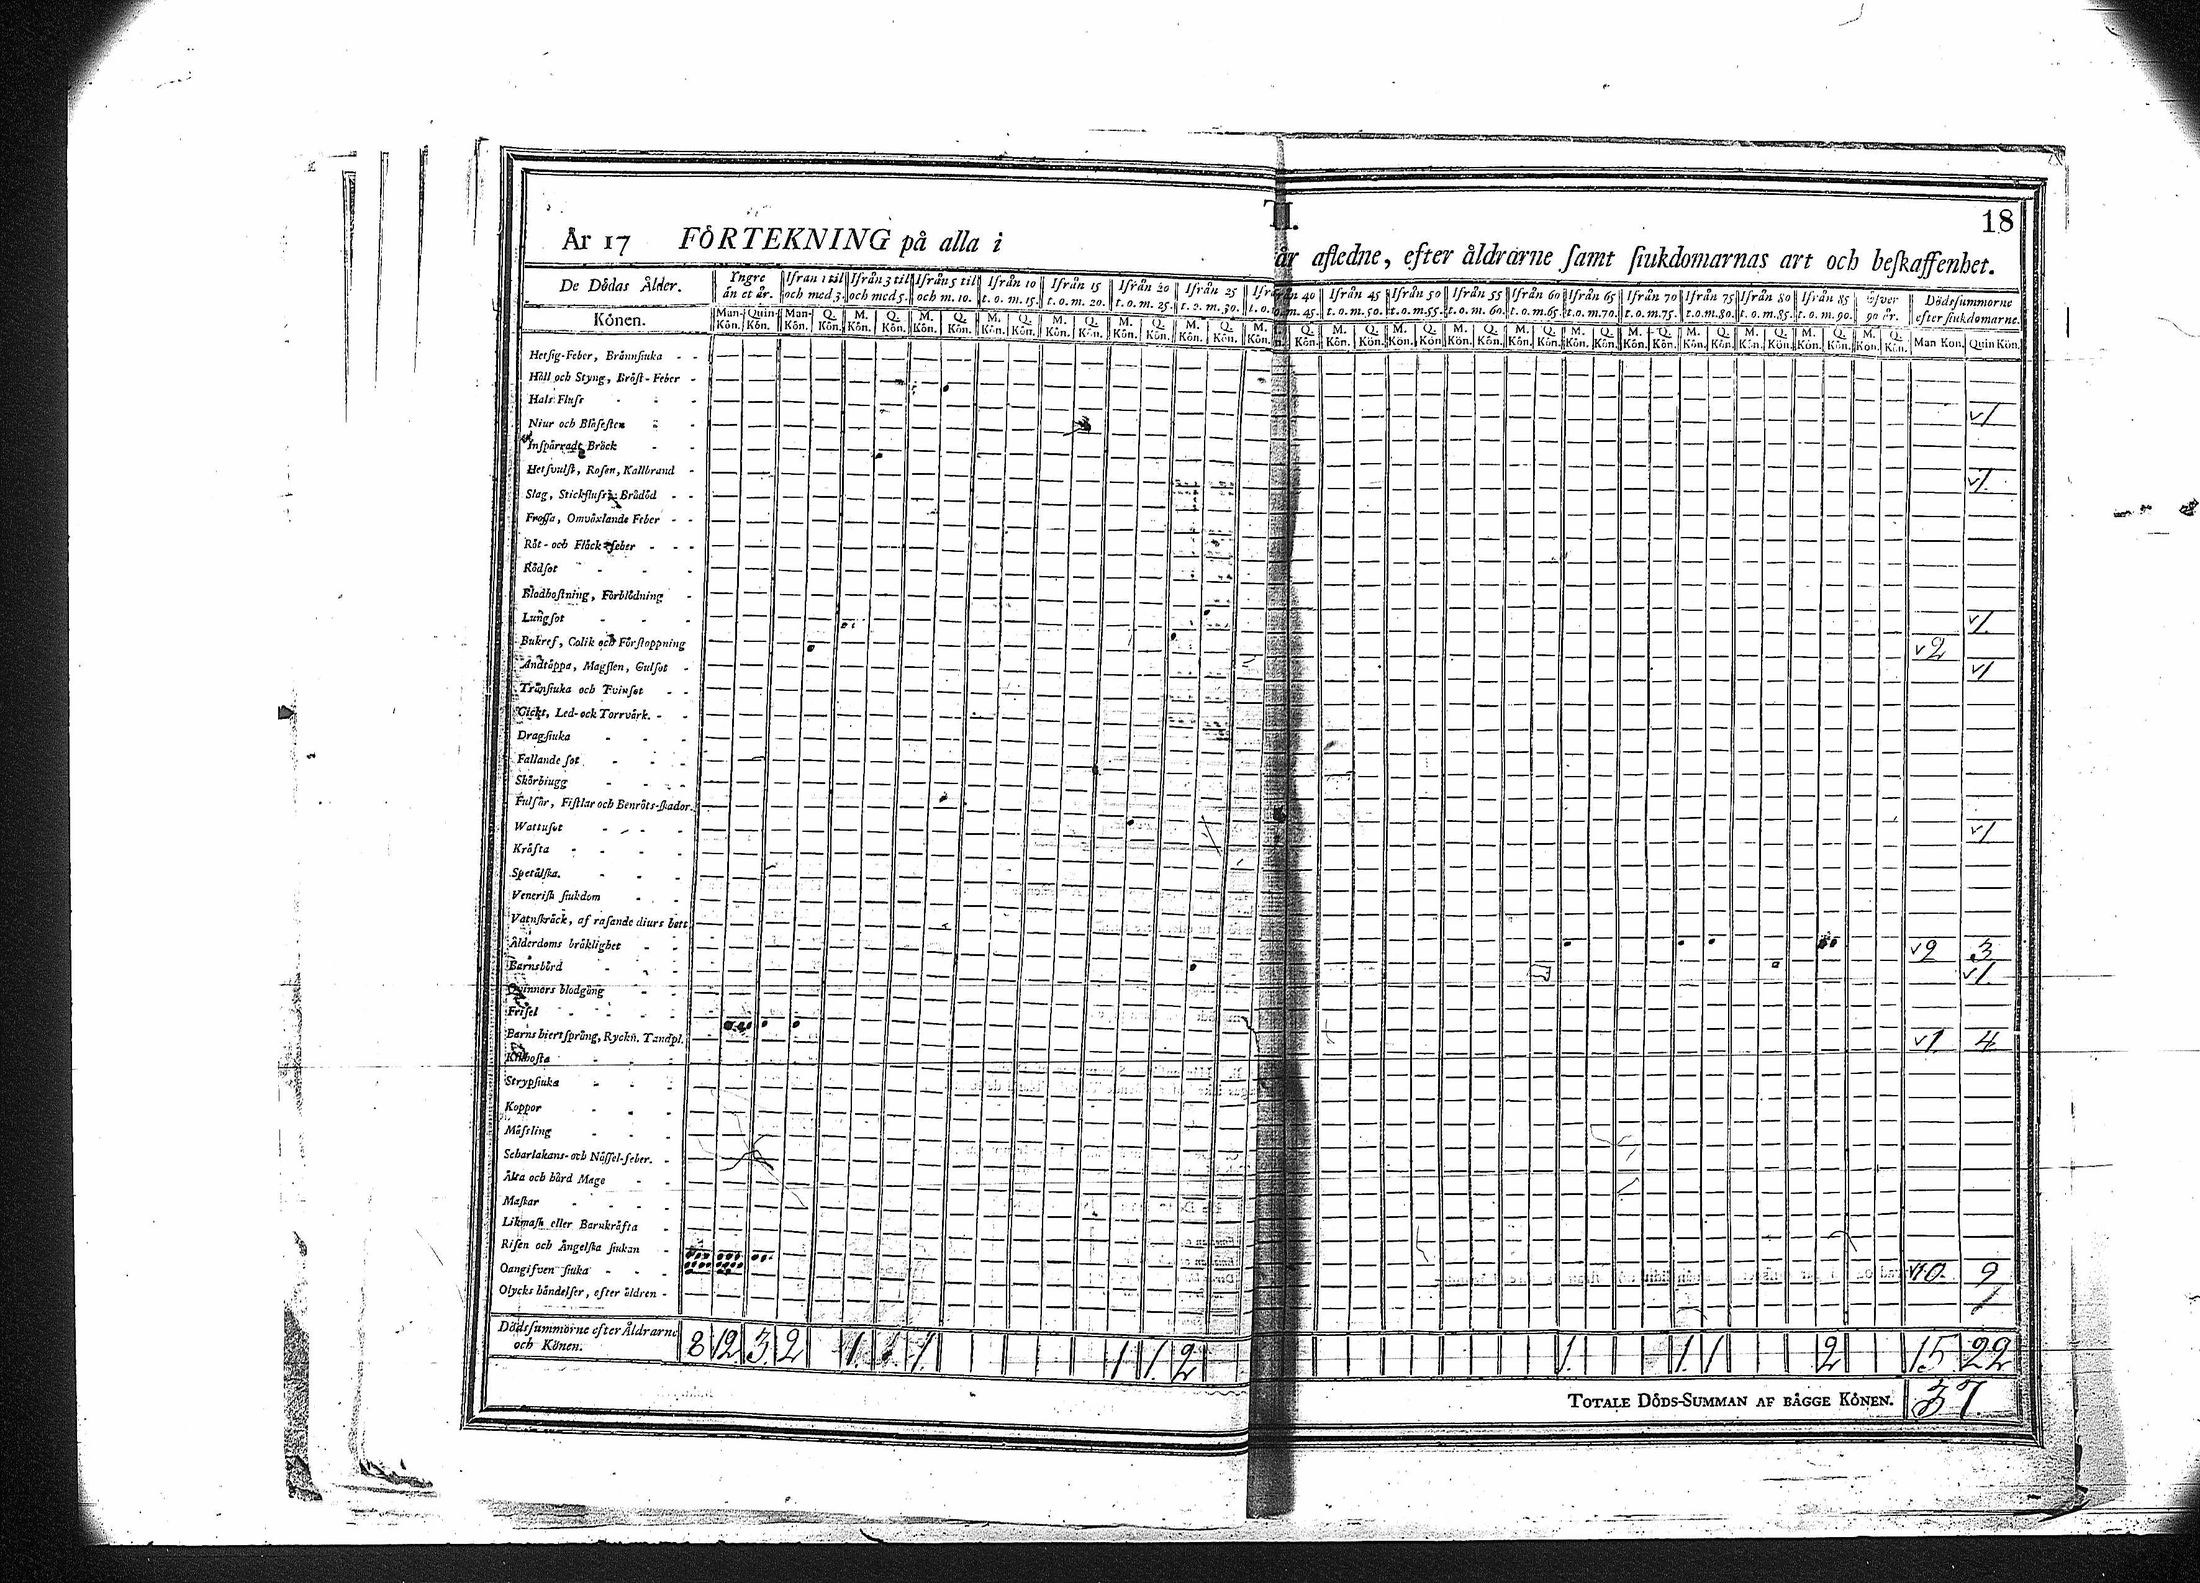 TI.
18
År 17 FÖRTEKNING på alla i år afledne, efter åldrarne samt siukdomarnas art och beskaffenhet.
De Dödas Ålder. Yngre än et år. Ifrån 1 til och med 3. Ifrån 3 til och med 5. Ifrån 5 til och m. 10. Ifrån 10 t. o. m. 15. Ifrån 15 t. o. m. 20. Ifrån 20 t. o. m. 25. Ifrån 25 t. o. m. 30. 40 m. 45. Ifrån 45 t. o. m. 50. Ifrån 50 t. o. m. 55. Ifrån 55 t. o. m. 60. Ifrån 60 t. o. m. 65. Ifrån 65 t. o. m. 70. Ifrån 70 t. o. m. 75. Ifrån 75 t. o. m. 80. Ifrån 80 t. o. m. 85. Ifrån 85 t. o. m. 90. öfver 90 år. Dödssummorne efter siukdomarne.
Könen. Man-Kön. Quin-Kön. Man-Kön. Q. Kön. M. Kön. Q. Kön. M. Kön. Q. Kön. M. Kön. Q. Kön. M. Kön. Q. Kön. M. Kön. Q. Kön. M. Kön. Q. Kön. M. Kön. Q. Kön. M. Kön. Q. Kön. M. Kön. Q. Kön. M. Kön. Q. Kön. M. Kön. Q. Kön. M. Kön. Q. Kön. M. Kön. Q. Kön. M. Kön. Q. Kön. M. Kön. Q. Kön. M. Kön. Q. Kön. M. Kön. Q. Kön. Man Kön. Quin Kön.
Hetsig-Feber, Brännsiuka - -
Håll och Styng, Bröst-Feber -
Hals Fluss - - - v1
Niur och Blåsesten - -
Inspärradt Bråck - -
Hetsvulst, Rosen, Kallbrand - v1.
Slag, Stickfluss, Brådöd - -
Frossa, Omväxlande Feber - -
Röt- och Fläckfeber - - -
Rödsot - - -
Blodhostning, Förblödning -
Lungsot - - - v1.
Bukref, Colik och Förstoppning v2
Andtäppa, Magslen, Gulsot - v1
Trånsiuka och Tvinsot - -
Gickt, Led- ock Torrvärk. - -
Dragsiuka - - -
Fallande sot - - -
Skörbiugg - - -
Fulsår, Fistlar och Benröts-skador.
Wattusot - - - - v1
Kräfta - - - -
Spetälska. - - -
Venerisk siukdom - - -
Vatnskräck, af rasande diurs bett
Ålderdoms bräklighet - - v2 3
Barnsbörd - - - v1.
Quinnors blodgång - -
Frisel - - - -
Barns hiertsprång, Ryckn. Tandpl. v1. 4
Kikhosta - - -
Strypsiuka - - -
Koppor - - -
Mässling - - -
Scharlakans- och Nässel-feber. -
Älta och hård Mage - -
Maskar - - - -
Likmask eller Barnkräfta -
Risen och Ängelska siukan -
Oangifven siuka - - - v10. 9
Olycks händelser, efter åldren - 1
Dödssummorne efter Åldrarne och Könen. 8 12 3 2 1. 1. 1 1 1. 2 1. 1. 1 2 15 22
TOTALE DÖDS-SUMMAN AF BÄGGE KÖNEN. 37